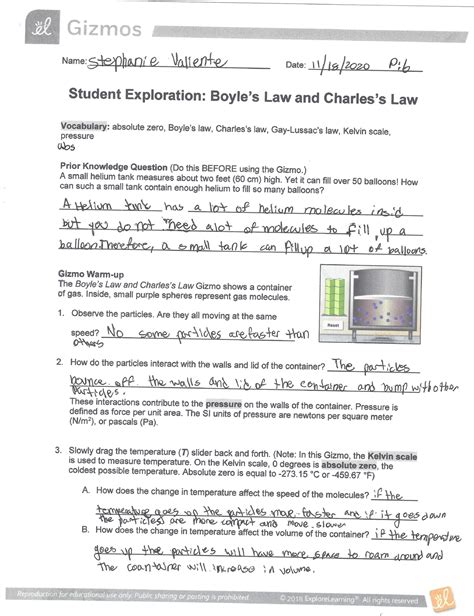 el Gizmos
Name: Stephanie Valiente Date: 11/18/2020 P:6
Student Exploration: Boyle's Law and Charles's Law
Vocabulary: absolute zero, Boyle's law, Charles's law, Gay-Lussac's law, Kelvin scale,
pressure
Prior Knowledge Question (Do this BEFORE using the Gizmo.)
A small helium tank measures about two feet (60 cm) high. Yet it can fill over 50 balloons! How
can such a small tank contain enough helium to fill so many balloons?
A Helium tank has a lot of helium molecules insid
but you do not need alot of molecules to fill up a
balloon.Therefore, a small tank can fillup a lot of balloons.
Gizmo Warm-up
The Boyle's Law and Charles's Law Gizmo shows a container
of gas. Inside, small purple spheres represent gas molecules.
Reset
1. Observe the particles. Are they all moving at the same
speed? No some particles are faster than
others
2. How do the particles interact with the walls and lid of the container? The particles
bounce off the walls and lid of the container and bump with other
particles.
These interactions contribute to the pressure on the walls of the container. Pressure is
defined as force per unit area. The SI units of pressure are newtons per square meter
(N/m²), or pascals (Pa).
3. Slowly drag the temperature (T) slider back and forth. (Note: In this Gizmo, the Kelvin scale
is used to measure temperature. On the Kelvin scale, 0 degrees is absolute zero, the
coldest possible temperature. Absolute zero is equal to -273.15 °C or -459.67 °F)
A. How does the change in temperature affect the speed of the molecules? if the
temperature goes up the particles move faster and if it goes down
the particles are more compact and move slower
B. How does the change in temperature affect the volume of the container? if the temperature
goes up the particles will have more space to roam around and
The coantainer will increase in volume.
Reproduction for educational use only. Public sharing or posting is prohibited. © 2018 ExploreLearning® All rights reserved
el